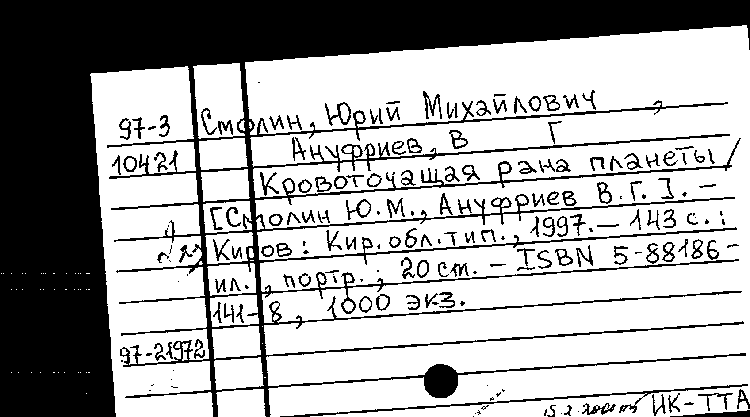 97-3 Смолин, Юрий Михайлович ,
10421 Ануфриев, В Г
Кровоточащая рана планеты /
[Смолин Ю.М., Ануфриев В.Г.]. —
Киров : Кир. обл. тип., 1997. — 143 с. :
ил., портр. ; 20 см. — ISBN 5-88186-
141-8, 1000 экз.
97-21972
НК-ТТА